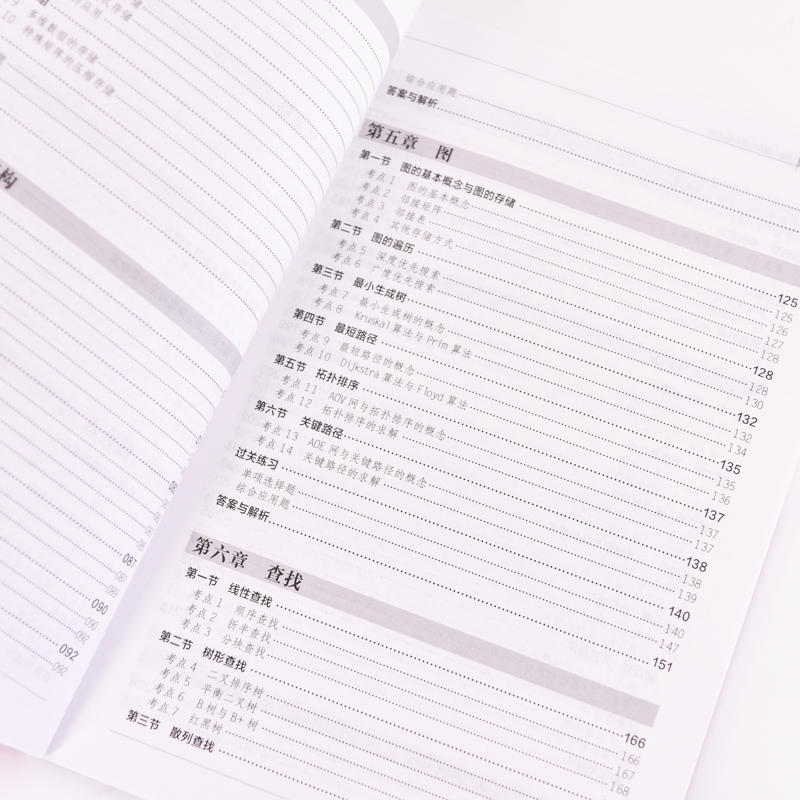 多维数组的存储
10 特殊矩阵的压缩存储
构
087
090
090
092
092
092
综合应用题
答案与解析
第五章 图
第一节 图的基本概念与图的存储 125
考点1 图的基本概念 125
考点2 邻接矩阵 126
考点3 邻接表 127
考点4 其他存储方式 128
第二节 图的遍历 128
考点5 深度优先搜索 128
考点6 广度优先搜索 130
第三节 最小生成树 132
考点7 最小生成树的概念 132
考点8 Kruskal算法与Prim算法 134
第四节 最短路径 135
考点9 最短路径的概念 135
考点10 Dijkstra算法与Floyd算法 136
第五节 拓扑排序 137
考点11 AOV网与拓扑排序的概念 137
考点12 拓扑排序的求解 137
第六节 关键路径 138
考点13 AOE网与关键路径的概念 138
考点14 关键路径的求解 139
过关练习 140
单项选择题 140
综合应用题 147
答案与解析 151
第六章 查找
第一节 线性查找 166
考点1 顺序查找 166
考点2 折半查找 167
考点3 分块查找 168
第二节 树形查找
考点4 二叉排序树
考点5 平衡二叉树
考点6 B树与B+树
考点7 红黑树
第三节 散列查找